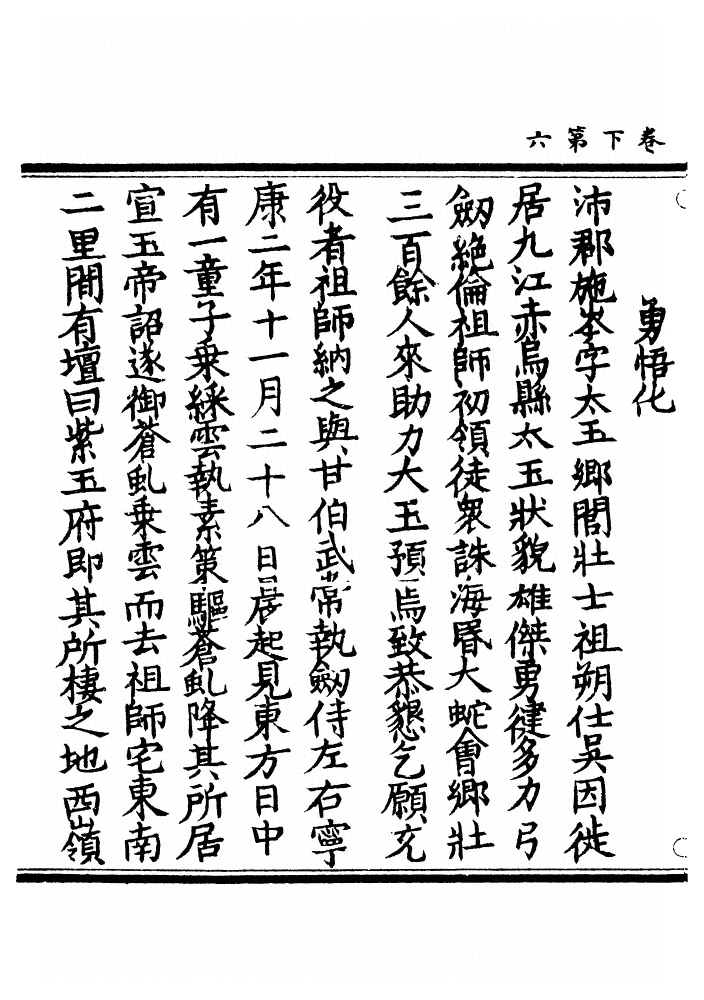 卷下第六
勇悟化
沛郡施岑字太玉鄉閭壯士祖朔仕吳因徙
居九江赤烏縣太玉狀貌雄傑勇健多力弓
劒絶倫祖師初領徒衆誅海昬大蛇會鄉壯
三百餘人來助力大玉預焉致恭懇乞願充
役者祖師納之與甘伯武常執劒侍左右寧
康二年十一月二十八日晨起見東方日中
有一童子乗綵雲執素策驅蒼虬降其所居
宣玉帝詔遂御蒼虬乗雲而去祖師宅東南
二里間有壇曰紫玉府即其所棲之地西嶺